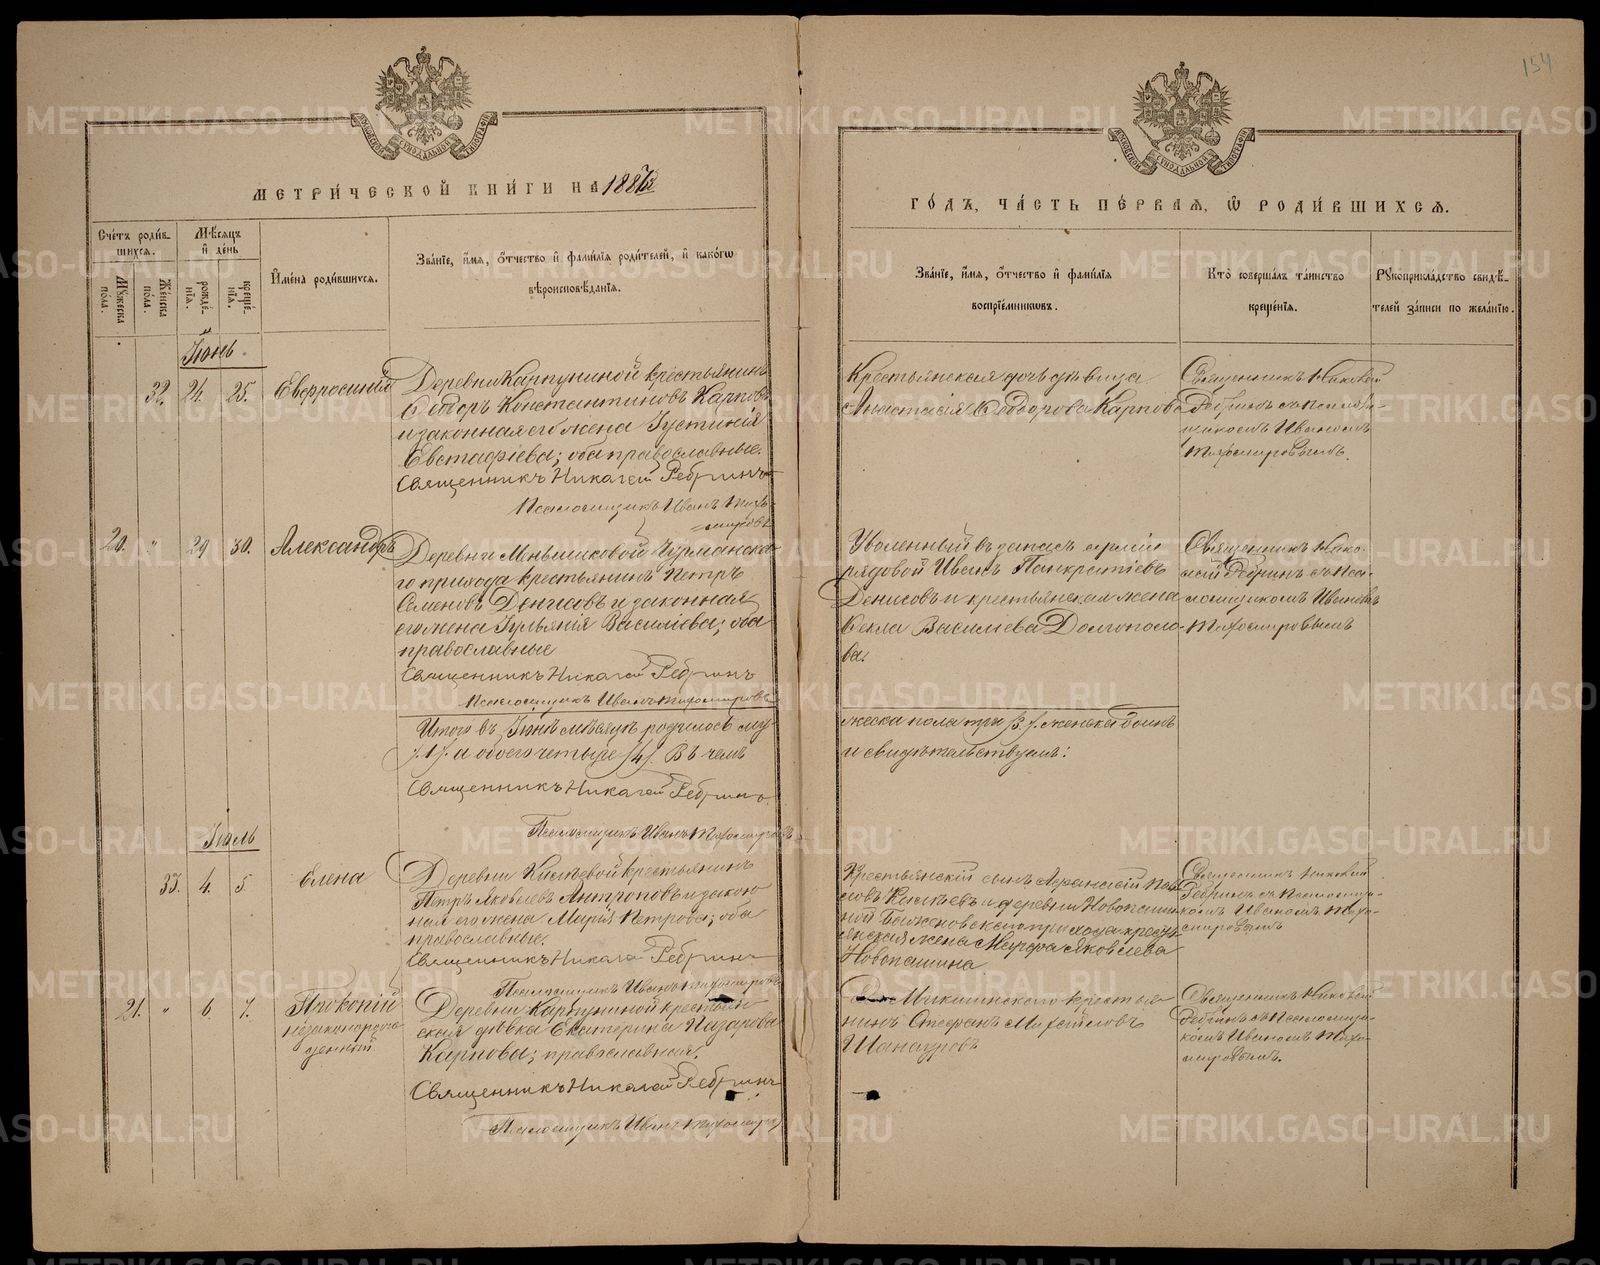 154
МЕТРИЧЕСКОЙ КНИГИ НА 1887й
ГОДЪ, ЧАСТЬ ПЕРВАЯ, Ѡ РОДИВШИХСЯ.
Счетъ родив-
шихся.
Мужеска
пола.
Женска
пола.
Мѣсяцъ
и день
рожде-
нія.
креще-
нія.
Имена родившихся.
Званіе, имя, отчество и фамилія родителей, и какого
вѣроисповѣданія.
Званіе, имя, отчество и фамилія
воспріемниковъ.
Кто совершалъ таинство
крещенія.
Рукоприкладство свидѣ-
телей записи по желанію.
Іюнь
32. 24. 25. Евфросинія
Деревни Карпуниной крестьянинъ
Ѳеодоръ Константиновъ Карповъ
и законная его жена Іустинія
Евстафіева; оба православные.
Священникъ Николай Ребринъ
Псаломщикъ Иванъ Тихо-
мировъ
Крестьянская дочь дѣвица
Анастасія Ѳеодорова Карпова
Священникъ Николай
Ребринъ съ псалом-
щикомъ Иваномъ
Тихомировымъ.
20. " 29 30. Александръ
Деревни Меньшиковой
го прихода крестьянинъ Петръ
Семеновъ Денисовъ и законная
его жена Іульянія Василіева; оба
православные
Священникъ Николай Ребринъ
Псаломщикъ Иванъ Тихомировъ
Уволенный въ запасъ арміи
рядовой Иванъ Панкратіевъ
Денисовъ и крестьянская жена
Ѳекла Василіева Долгополо-
ва.
Священникъ Нико-
лай Ребринъ съ пса-
ломщикомъ Иваномъ
Тихомировымъ
Итого въ Іюнѣ мѣсяцѣ родилось му-
жеска пола три /3./ женска одинъ
/.1/. и обоего четыре /4/. Въ чемъ
и свидѣтельствуемъ:
Священникъ Николай Ребринъ
Псаломщикъ Иванъ Тихомировъ
Іюль
33. 4. 5. Елена
Деревни Киселевой крестьянинъ
Петръ Яковлевъ Антроповъ и закон-
ная его жена Марія Петрова; оба
православные.
Священникъ Николай Ребринъ
Псаломщикъ Иванъ Тихомировъ
Крестьянскій сынъ
и деревни Новопаши-
ной прихода кресть-
янская жена Марфа Яковлева
Новопашина
Священникъ Николай
Ребринъ съ Псаломщи-
комъ Иваномъ Тихо-
мировымъ
21. " 6. 7. Прокопій
незаконорож-
денный
Деревни Карпуниной крестьян-
ская дѣвка Екатерина Назарова
Карпова; православная.
Священникъ Николай Ребринъ
Псаломщикъ Иванъ Тихомировъ
Микшинскаго крестья-
нинъ Стефанъ Михайловъ
Шанауровъ
Священникъ Николай
Ребринъ съ Псаломщи-
комъ Иваномъ Тихо-
мировымъ.
METRIKI.GASO-URAL.RU